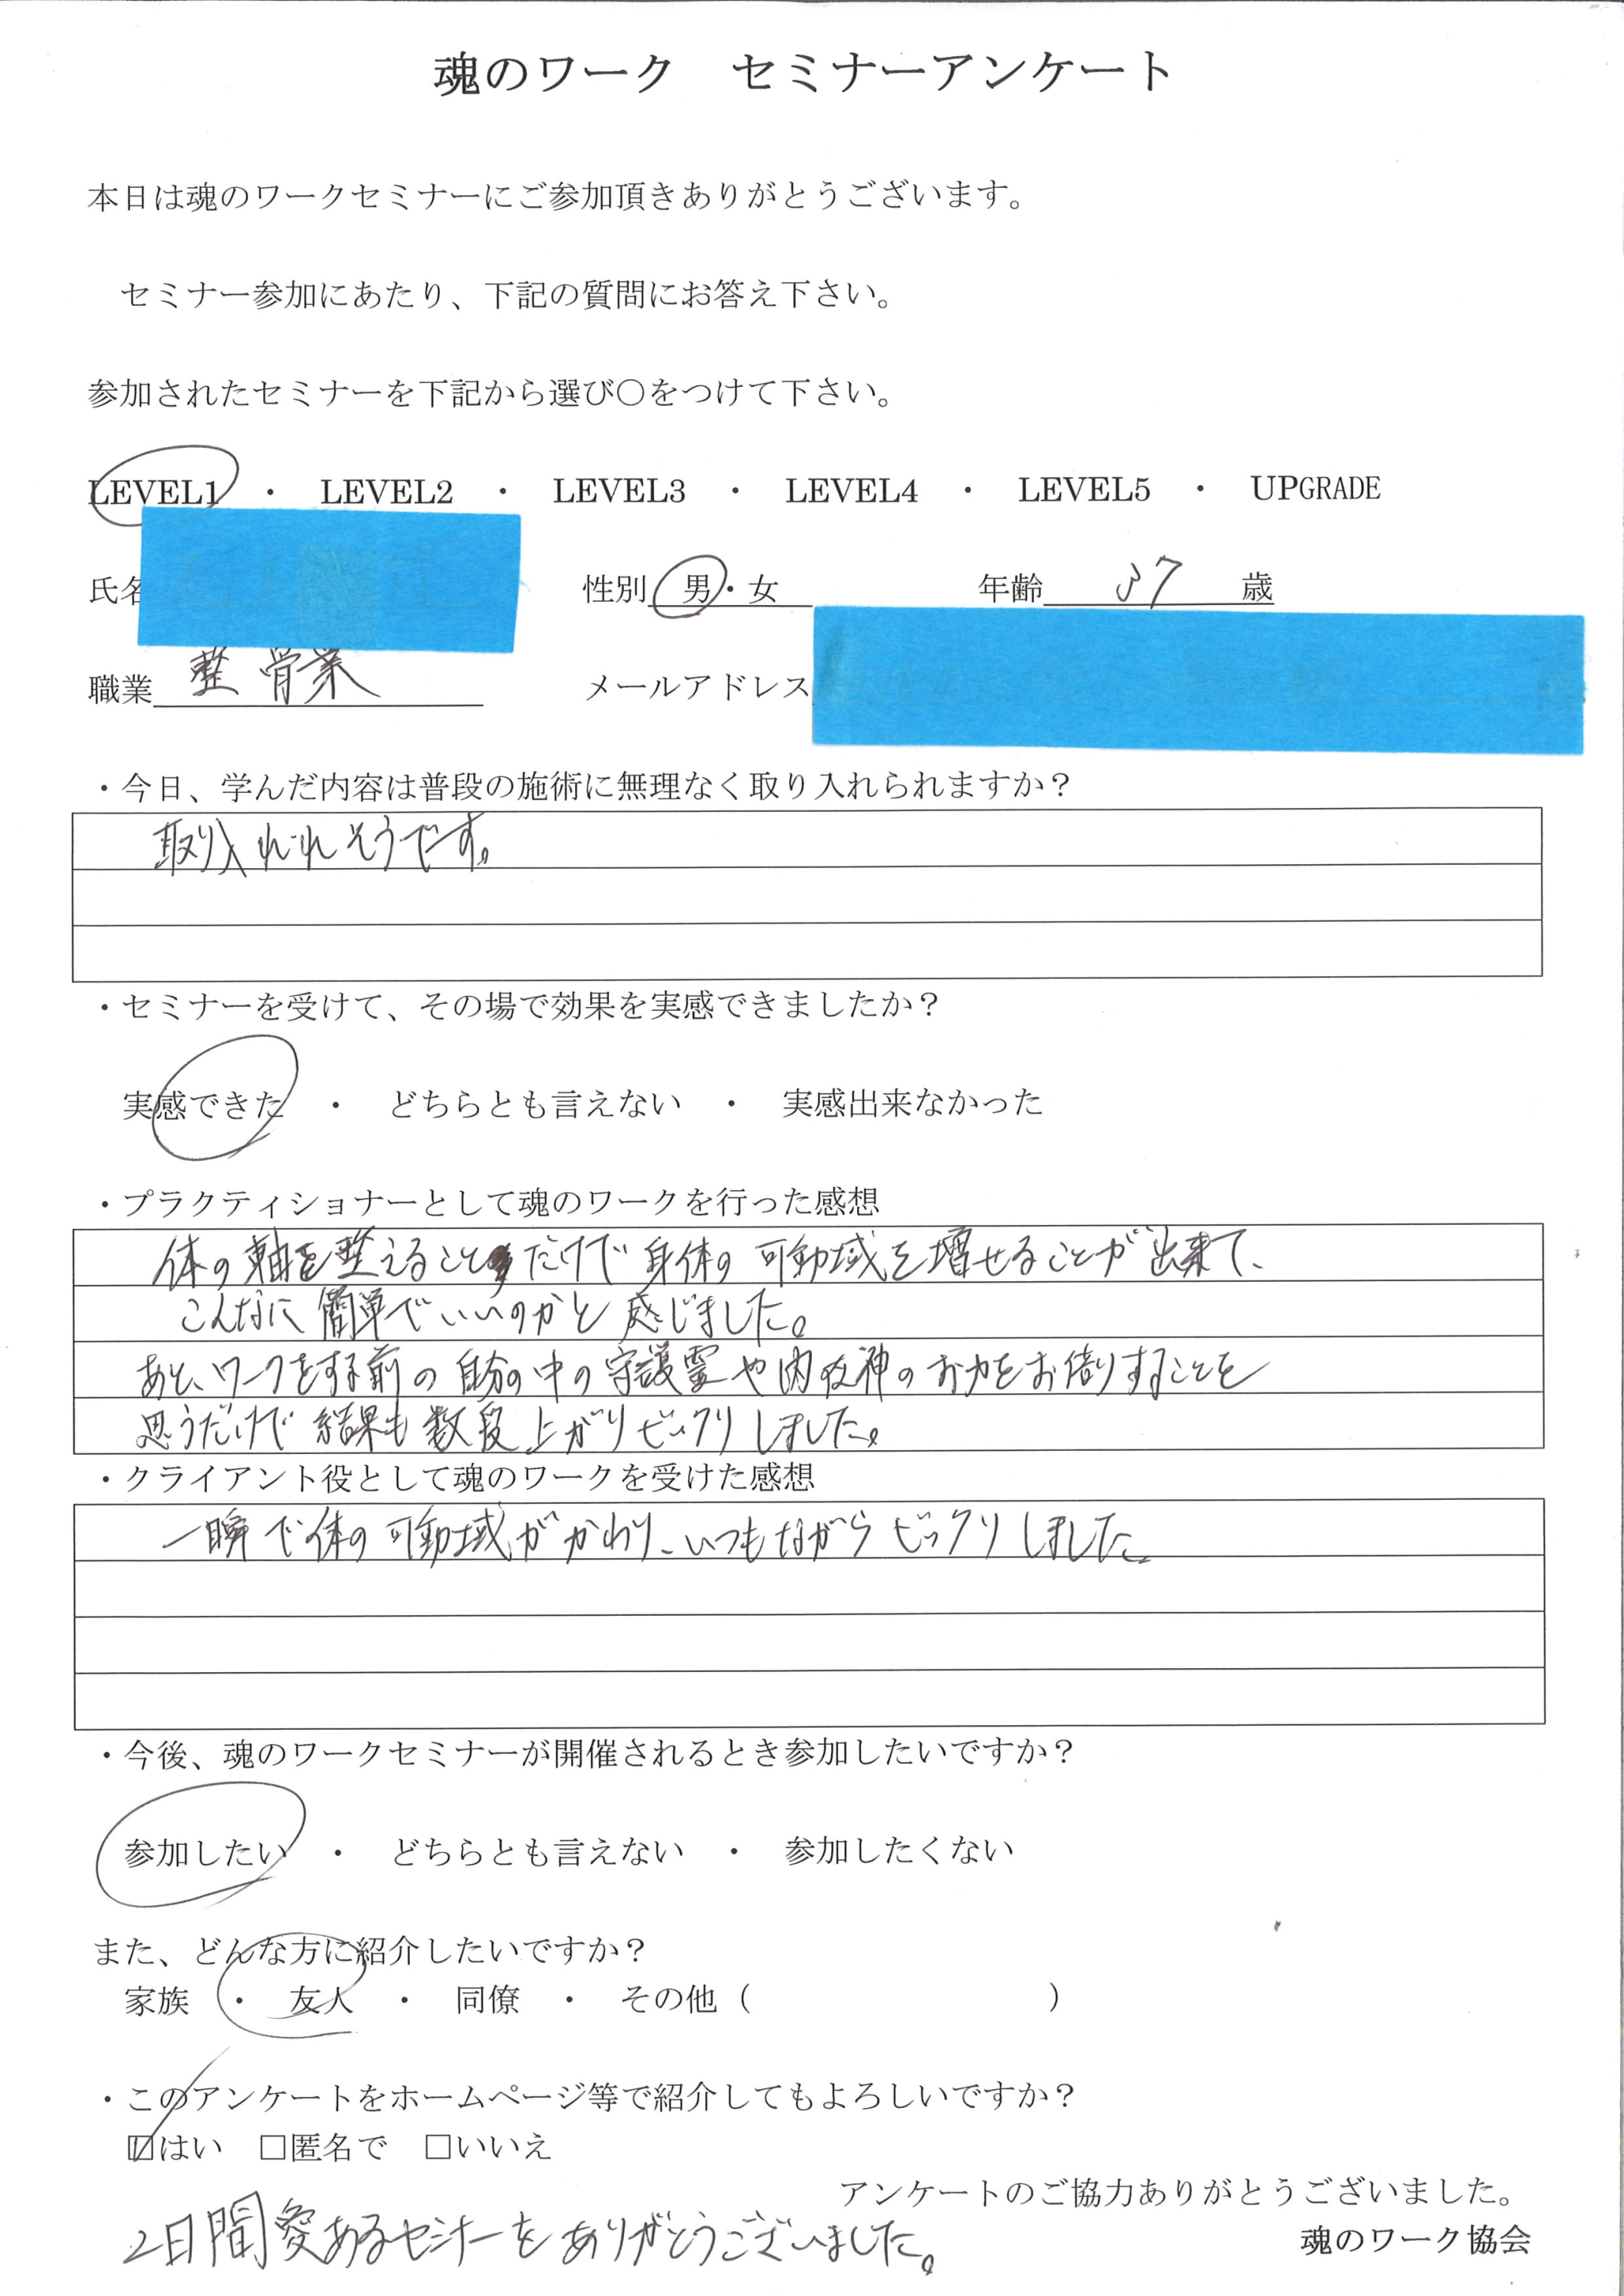 魂のワーク　セミナーアンケート
本日は魂のワークセミナーにご参加頂きありがとうございます。
セミナー参加にあたり、下記の質問にお答え下さい。
参加されたセミナーを下記から選び〇をつけて下さい。
LEVEL1 ・ LEVEL2 ・ LEVEL3 ・ LEVEL4 ・ LEVEL5 ・ UPGRADE
氏名 性別 男・女 年齢 37 歳
職業 整骨業 メールアドレス
・今日、学んだ内容は普段の施術に無理なく取り入れられますか？
取り入れれそうです。
・セミナーを受けて、その場で効果を実感できましたか？
実感できた ・ どちらとも言えない ・ 実感出来なかった
・プラクティショナーとして魂のワークを行った感想
体の軸を整えることだけで身体の可動域を増せることが出来て、
こんなに簡単でいいのかと感じました。
あと、ワークをする前の自分の中の守護霊や内在神のお力をお借りすることを
思うだけで結果も数段上がりビックリしました。
・クライアント役として魂のワークを受けた感想
一瞬で体の可動域がかわり、いつもながらビックリしました。
・今後、魂のワークセミナーが開催されるとき参加したいですか？
参加したい ・ どちらとも言えない ・ 参加したくない
また、どんな方に紹介したいですか？
家族 ・ 友人 ・ 同僚 ・ その他（　　　　　　　　　）
・このアンケートをホームページ等で紹介してもよろしいですか？
☑はい □匿名で □いいえ
アンケートのご協力ありがとうございました。
魂のワーク協会
2日間愛あるセミナーをありがとうございました。